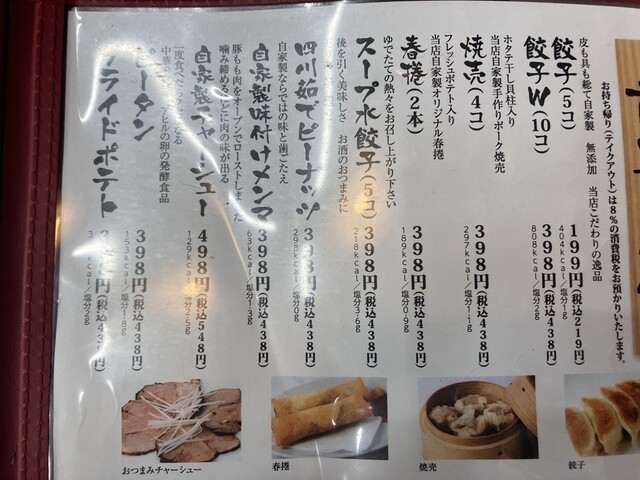 お持ち帰り(テイクアウト)は8%の消費税をお預かりいたします。
皮も具も総て自家製 無添加 当店こだわりの逸品
餃子(5コ)
199円(税込219円)
404kcal/塩分1g
餃子W(10コ)
398円(税込438円)
808kcal/塩分2g
ホタテ干し貝柱入り
当店自家製手作りポーク焼売
焼売(4コ)
398円(税込438円)
297kcal/塩分1.1g
フレッシュポテト入り
当店自家製オリジナル春捲
春捲(2本)
398円(税込438円)
189kcal/塩分0.9g
ゆでたての熱々をお召し上がり下さい
スープ水餃子(5コ)
398円(税込438円)
218kcal/塩分3.6g
後を引く美味しさ お酒のおつまみに
四川茹でピーナッツ
398円(税込438円)
298kcal/塩分0g
自家製ならではの味と歯ごたえ
自家製味付けメンマ
398円(税込438円)
63kcal/塩分1.3g
豚もも肉をオーブンでローストしました
噛み締めるごとに肉の味が出る
自家製チャーシュー
498円(税込548円)
129kcal/塩分2.6g
一度食べ
なる
アヒルの卵の発酵食品
ピータン
398円(税込438円)
153kcal/塩分1.8g
フライドポテト
398円(税込438円)
kcal/塩分2g
おつまみチャーシュー
春捲
焼売
餃子